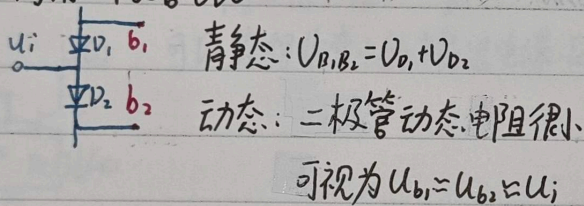 Ui
D₁ b₁
D₂ b₂
静态:U_B₁B₂=U_D₁+U_D₂
动态:二极管动态电阻很小
可视为 U_b₁≈U_b₂≈Ui